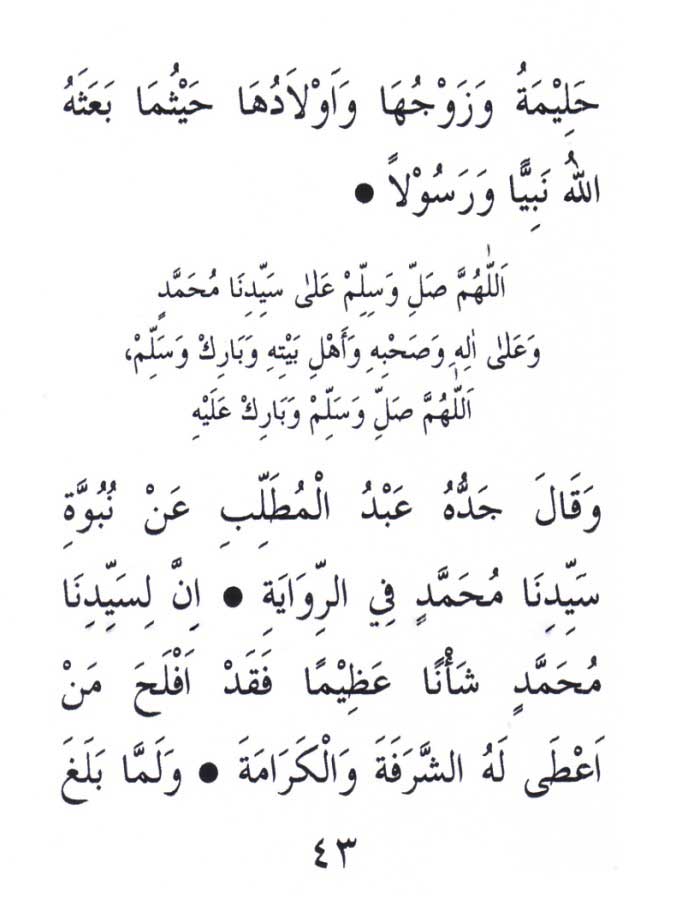 حَلِيْمَةُ وَزَوْجُهَا وَاَوْلاَدُهَا حَيْثُمَا بَعَثَهُ
اللهُ نَبِيًّا وَرَسُوْلاً ●
اَللّٰهُمَّ صَلِّ وَسِلِّمْ عَلٰى سَيِّدِنَا مُحَمَّدٍ
وَعَلٰى اٰلِهِ وَصَحْبِهِ وَأَهْلِ بَيْتِهِ وَبَارِكْ وَسَلِّمْ،
اَللّٰهُمَّ صَلِّ وَسَلِّمْ وَبَارِكْ عَلَيْهِ
وَقَالَ جَدُّهُ عَبْدُ الْمُطَلِّبِ عَنْ نُبُوَّةِ
سَيِّدِنَا مُحَمَّدٍ فِي الرِّوَايَةِ ● اِنَّ لِسَيِّدِنَا
مُحَمَّدٍ شَأْنًا عَظِيْمًا فَقَدْ اَفْلَحَ مَنْ
اَعْطَى لَهُ الشَّرَفَةَ وَالْكَرَامَةَ ● وَلَمَّا بَلَغَ
٤٣